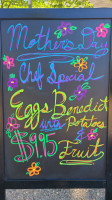 Mothers Day
Chef Special
Eggs Benedict
with Potatoes
&
$9.95 Fruit